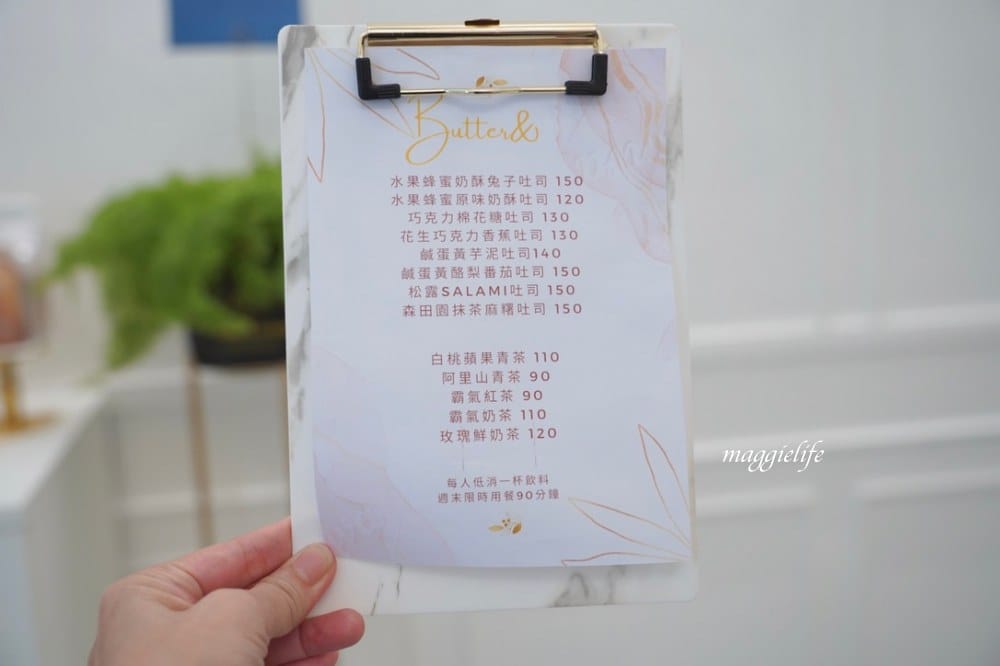 Butter&
水果蜂蜜奶酥兔子吐司 150
水果蜂蜜原味奶酥吐司 120
巧克力棉花糖吐司 130
花生巧克力香蕉吐司 130
鹹蛋黃芋泥吐司140
鹹蛋黃酪梨番茄吐司 150
松露SALAMI吐司 150
森田園抹茶麻糬吐司 150
白桃蘋果青茶 110
阿里山青茶 90
霸氣紅茶 90
霸氣奶茶 110
玫瑰鮮奶茶 120
每人低消一杯飲料
週末限時用餐90分鐘
maggielife